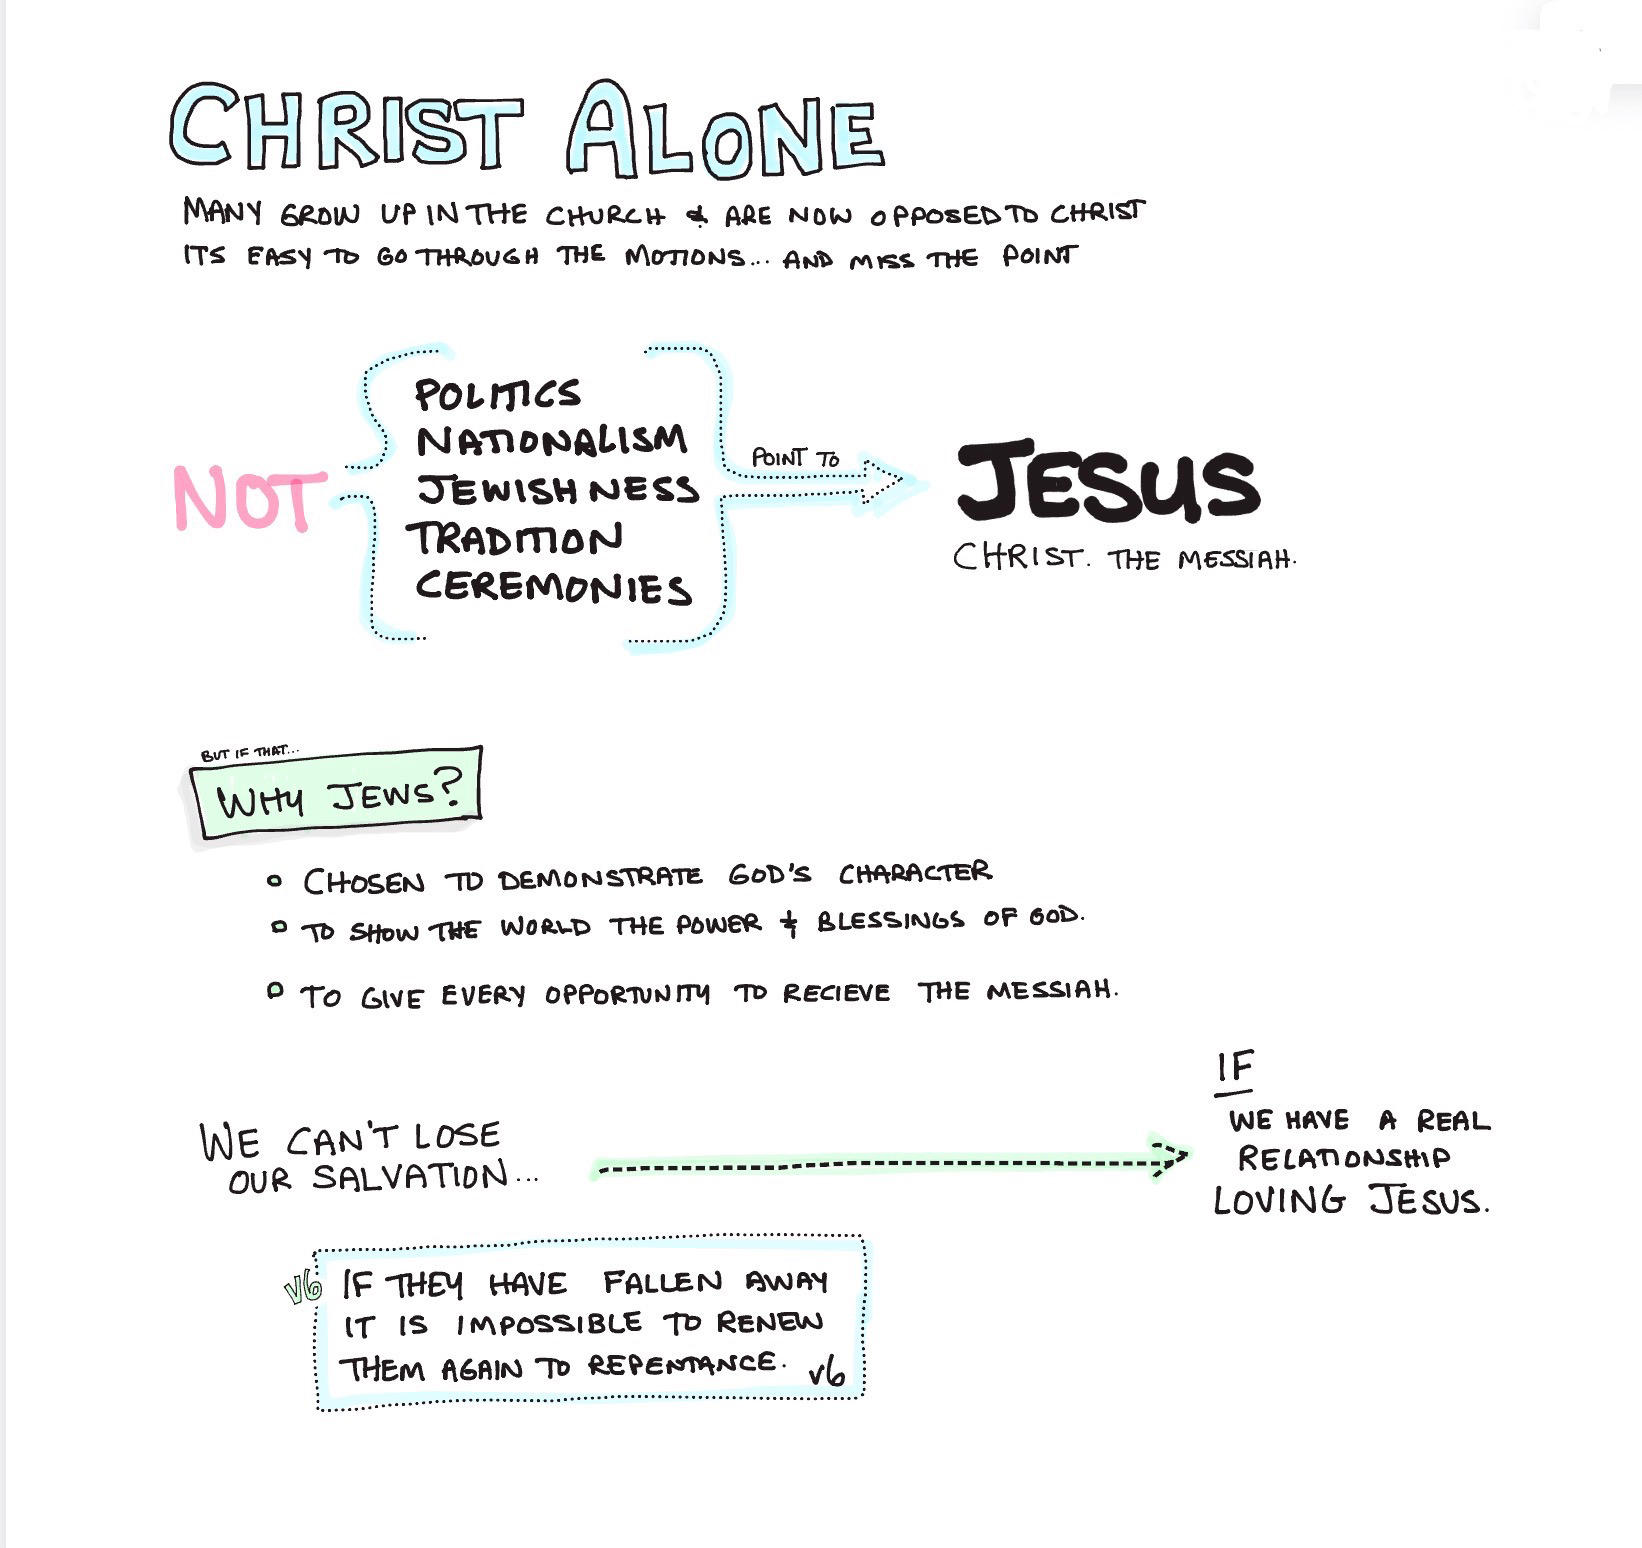 CHRIST ALONE
MANY GROW UP IN THE CHURCH & ARE NOW OPPOSED TO CHRIST
ITS EASY TO GO THROUGH THE MOTIONS... AND MISS THE POINT
NOT
POLITICS
NATIONALISM
JEWISHNESS
TRADITION
CEREMONIES
POINT TO
JESUS
CHRIST. THE MESSIAH.
BUT IF THAT...
WHY JEWS?
CHOSEN TO DEMONSTRATE GOD'S CHARACTER
TO SHOW THE WORLD THE POWER & BLESSINGS OF GOD.
TO GIVE EVERY OPPORTUNITY TO RECIEVE THE MESSIAH.
WE CAN'T LOSE
OUR SALVATION...
IF
WE HAVE A REAL
RELATIONSHIP
LOVING JESUS.
V6 IF THEY HAVE FALLEN AWAY
IT IS IMPOSSIBLE TO RENEW
THEM AGAIN TO REPENTANCE. V6